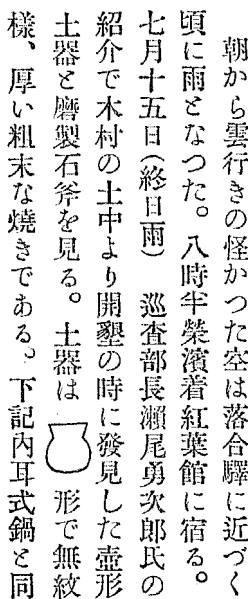 朝から雲行きの怪かつた空は落合驛に近づく
頃に雨となつた。八時半榮濱着紅葉館に宿る。
七月十五日(終日雨)　巡査部長瀨尾勇次郎氏の
紹介で木村の土中より開墾の時に發見した壺形
土器と磨製石斧を見る。土器は　形で無紋
樣、厚い粗末な燒きである。下記內耳式鍋と同